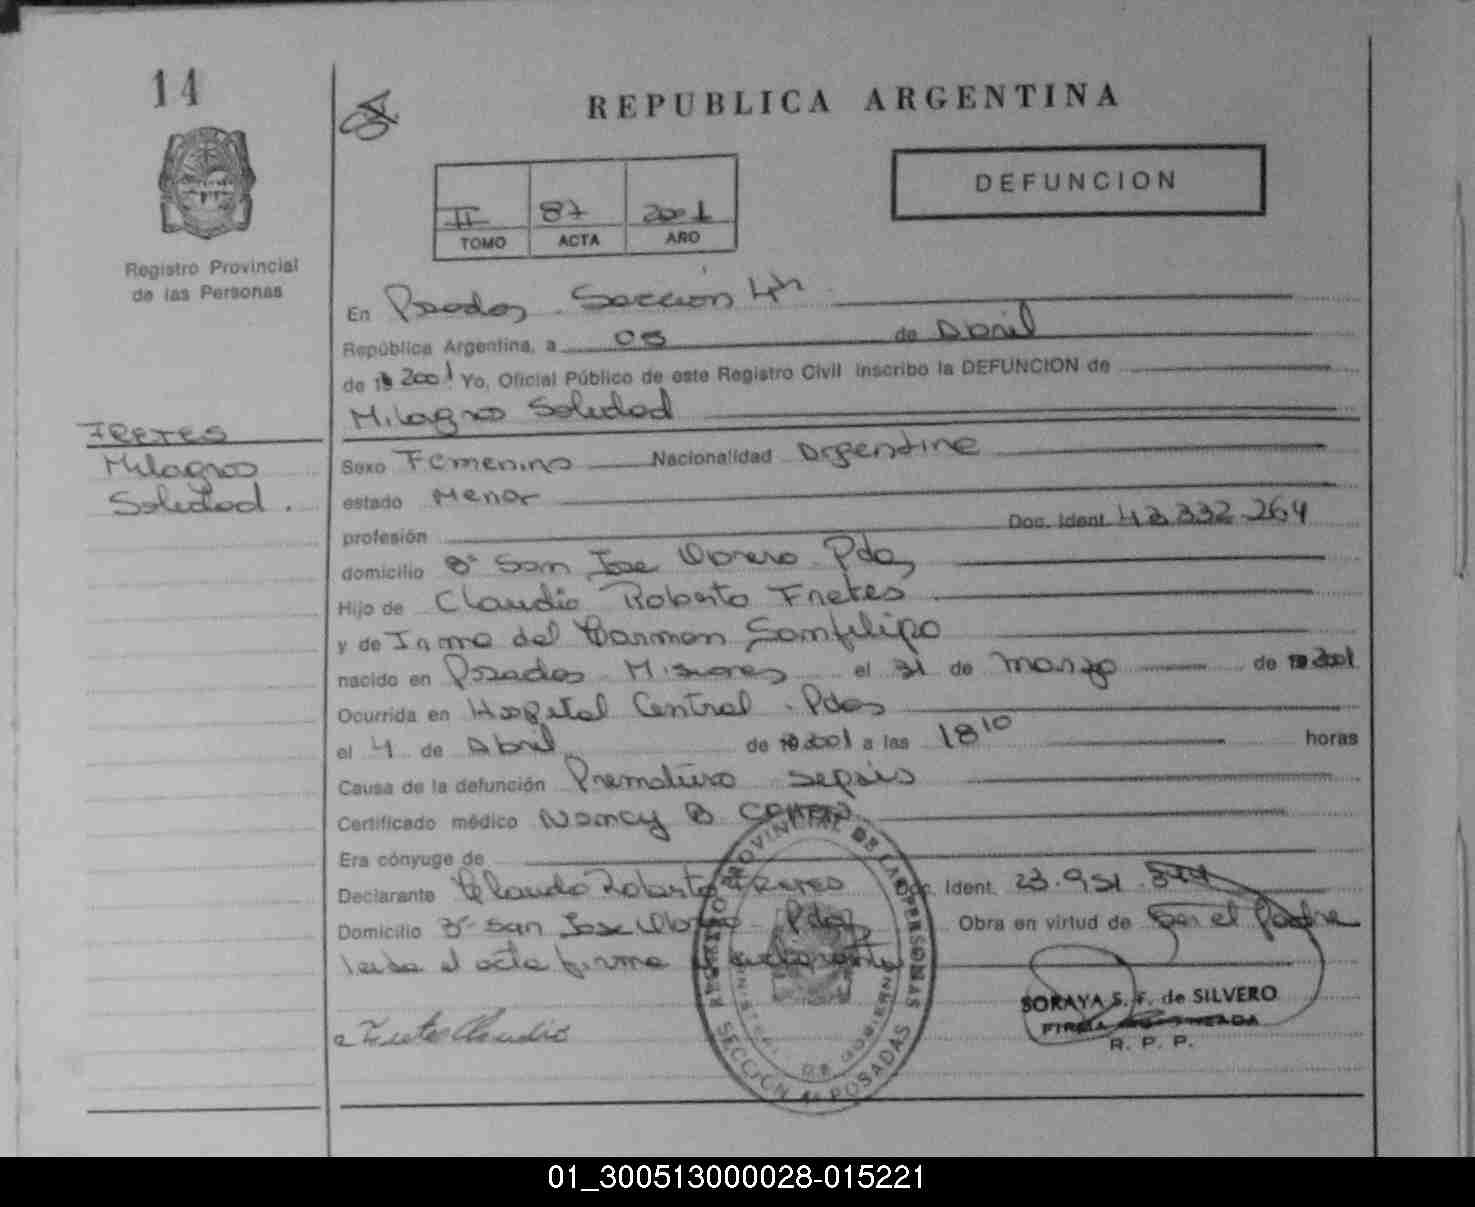 14
REPUBLICA ARGENTINA
DEFUNCION
II 87 2001
TOMO ACTA AÑO
Registro Provincial
de las Personas
En Posadas Sección 4ta
República Argentina, a 05 de Abril
de 19 2001 Yo, Oficial Público de este Registro Civil inscribo la DEFUNCION de
Milagros Soledad
FRETES
Milagros
Soledad.
Sexo Femenino Nacionalidad Argentina
estado Menor
profesión Doc. Ident. 43.332.264
domicilio Bº San Jose Obrero Pdas
Hijo de Claudio Roberto Fretes
y de Irma del Carmen Sanfilipo
nacido en Posadas Misiones el 31 de marzo de 19 2001
Ocurrida en Hospital Central. Pdas
el 4 de Abril de 19 2001 a las 18 10 horas
Causa de la defunción Prematuro sepsis
Certificado médico Nancy B
Era cónyuge de
Declarante Claudio Roberto FRETES Doc. Ident. 23.951.
Domicilio Bº San Jose Obrero Pdas Obra en virtud de Ser el Padre
leida el acta firma el declarante
Fretes Claudio
REGISTRO PROVINCIAL DE LAS PERSONAS
MINISTERIO DE GOBIERNO
SECCION 4ª POSADAS
SORAYA S. F. de SILVERO
FIRMA AUTORIZADA
R. P. P.
01_300513000028-015221